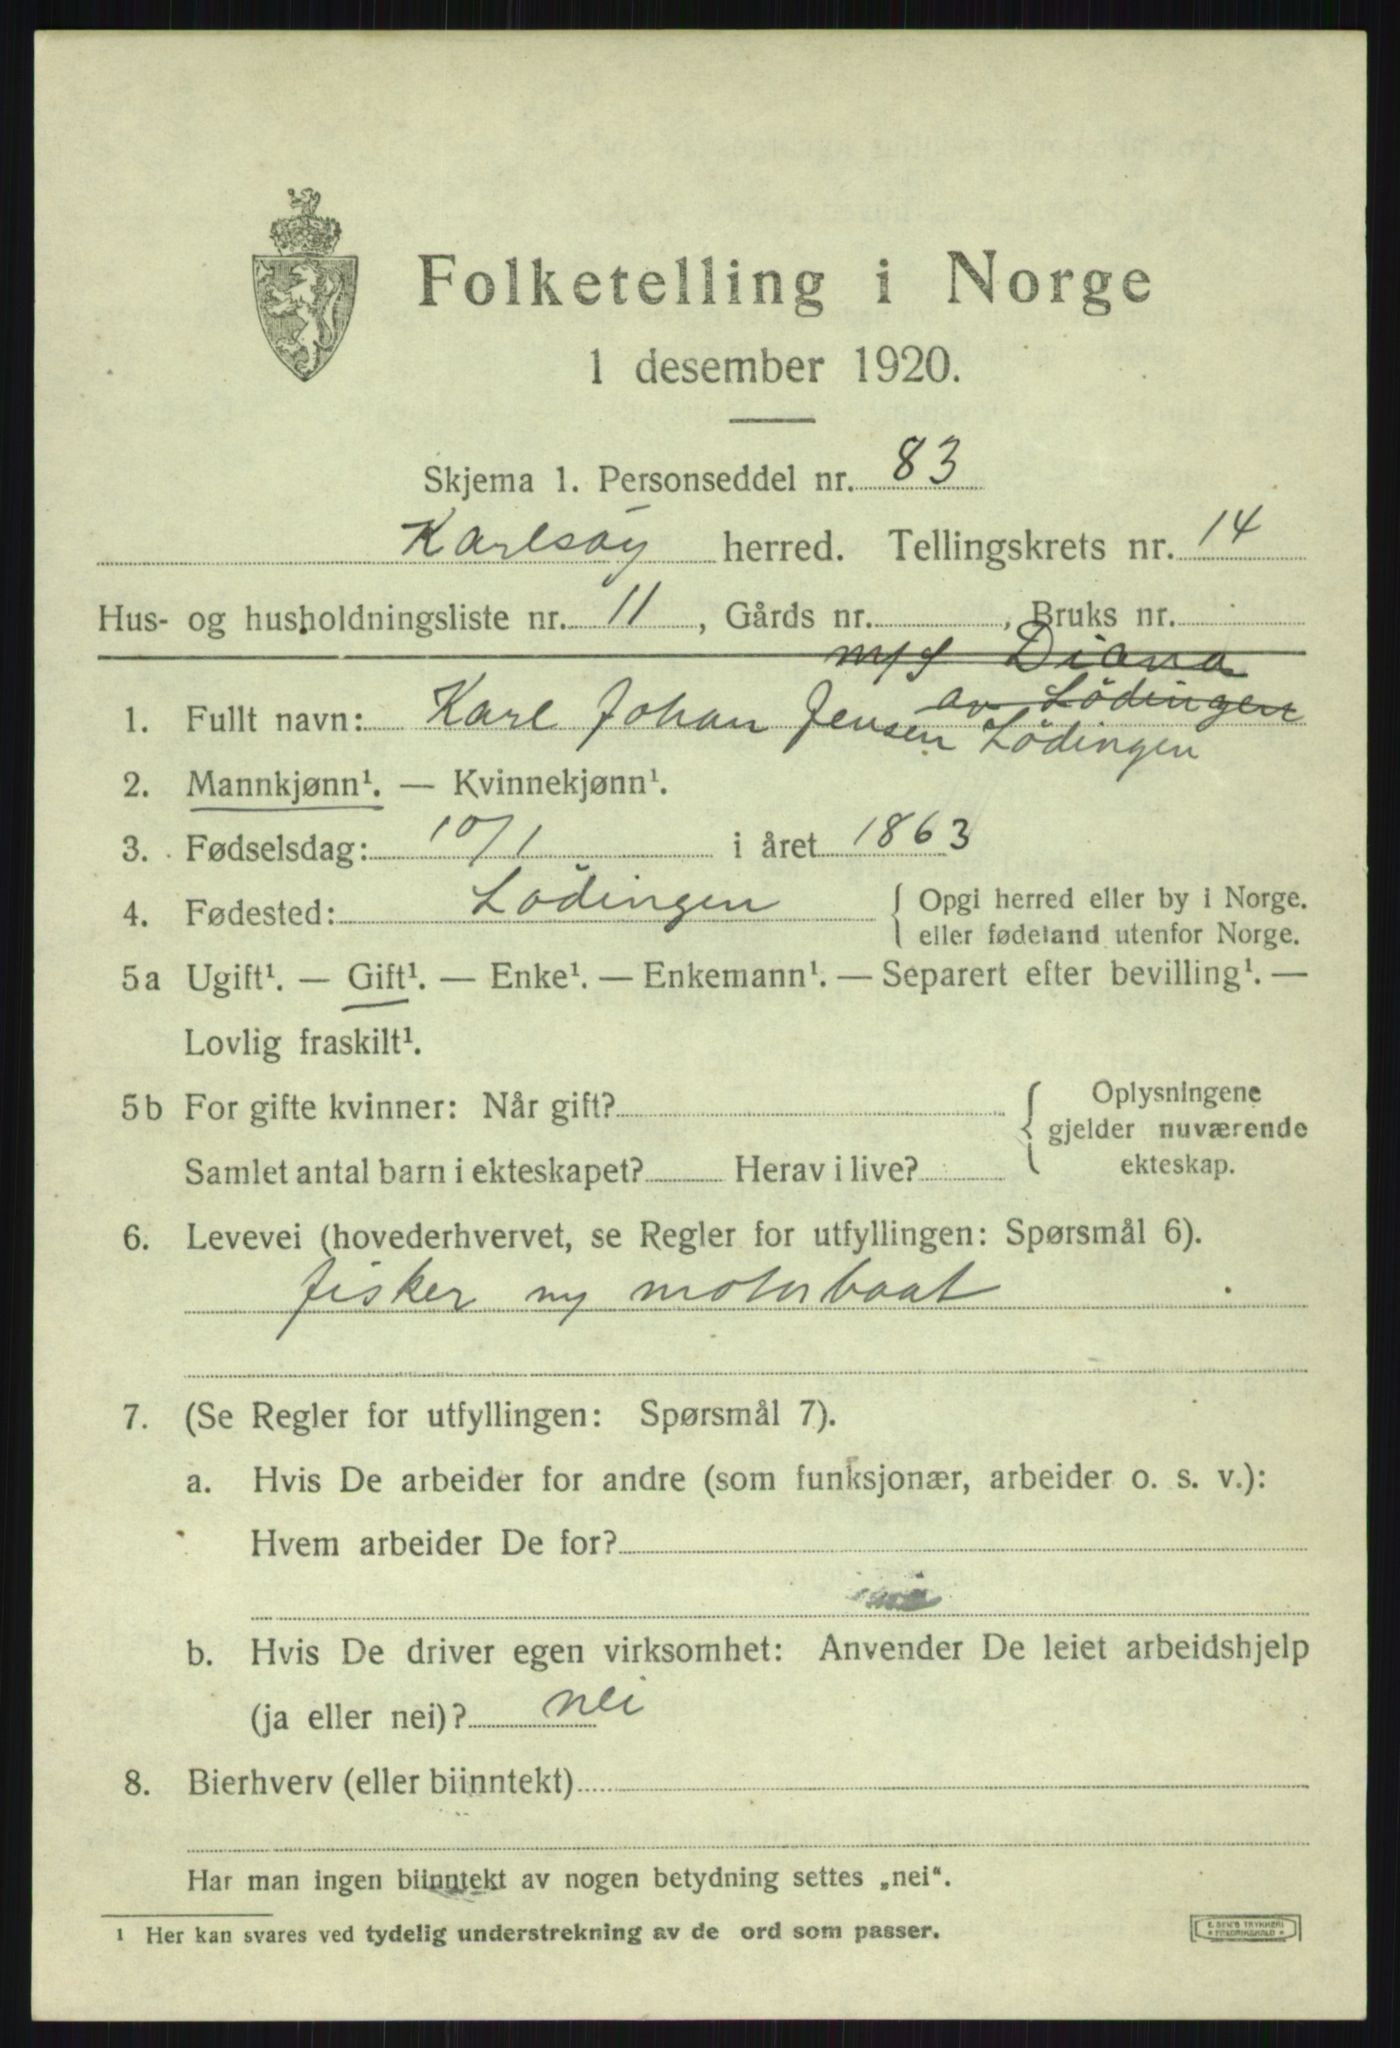 Folketelling i Norge
1 desember 1920.
Skjema 1. Personseddel nr. 83
Karlsøy herred. Tellingskrets nr. 14
Hus- og husholdningsliste nr. 11, Gårds nr. , Bruks nr.
m/s Diana
av Lödingen
1. Fullt navn: Karl Johan Jensen Lödingen
2. Mannkjønn¹. — Kvinnekjønn¹.
3. Fødselsdag: 10/1 i året 1863
4. Fødested: Lödingen { Opgi herred eller by i Norge.
eller fødeland utenfor Norge.
5a Ugift¹. — Gift¹. — Enke¹. — Enkemann¹. — Separert efter bevilling¹. —
Lovlig fraskilt¹.
5b For gifte kvinner: Når gift? { Oplysningene
gjelder nuværende
Samlet antal barn i ekteskapet? Herav i live? ekteskap.
6. Levevei (hovederhvervet, se Regler for utfyllingen: Spørsmål 6).
fisker ny motorbaat
7. (Se Regler for utfyllingen: Spørsmål 7).
a. Hvis De arbeider for andre (som funksjonær, arbeider o. s. v.):
Hvem arbeider De for?
b. Hvis De driver egen virksomhet: Anvender De leiet arbeidshjelp
(ja eller nei)? nei
8. Bierhverv (eller biinntekt)
Har man ingen biinntekt av nogen betydning settes „nei“.
¹ Her kan svares ved tydelig understrekning av de ord som passer.